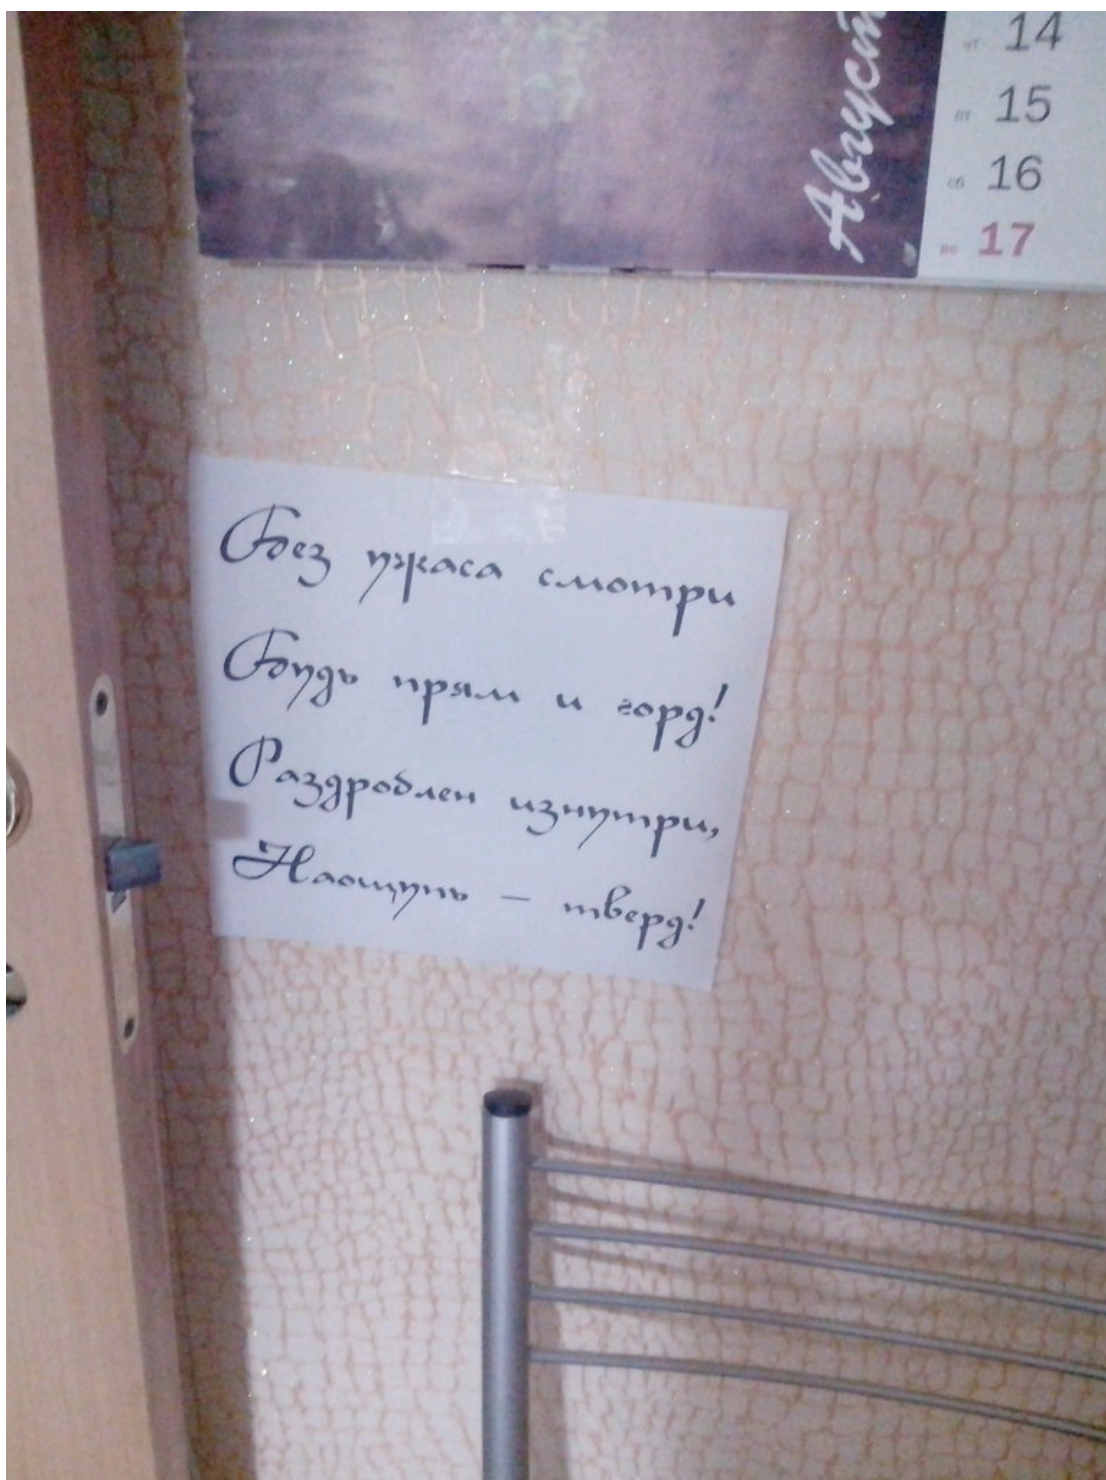 Август
чт 14
пт 15
сб 16
вс 17
Без ужаса смотри
Будь прям и горд!
Раздроблен изнутри,
Наощупь – тверд!